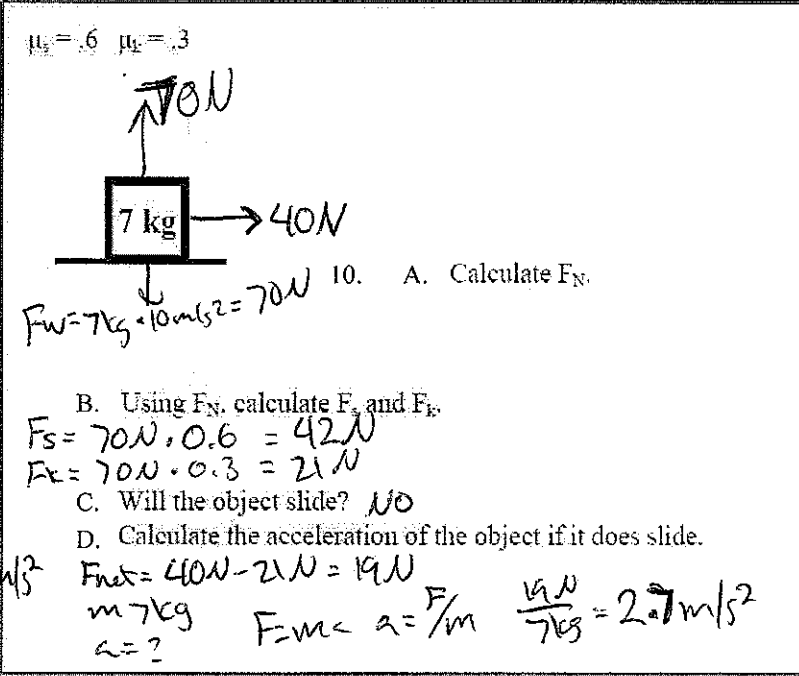 μs = .6 μk = .3
70N
7 kg
40N
10. A. Calculate FN.
Fw=7kg•10m/s2=70N
B. Using FN, calculate Fs and Fk.
Fs = 70N•0.6 = 42N
Fk = 70N•0.3 = 21N
C. Will the object slide? NO
D. Calculate the acceleration of the object if it does slide.
m/s2 Fnet = 40N-21N = 19N
m 7kg F=ma a=F/m 19N/7kg = 2.7m/s2
a=?